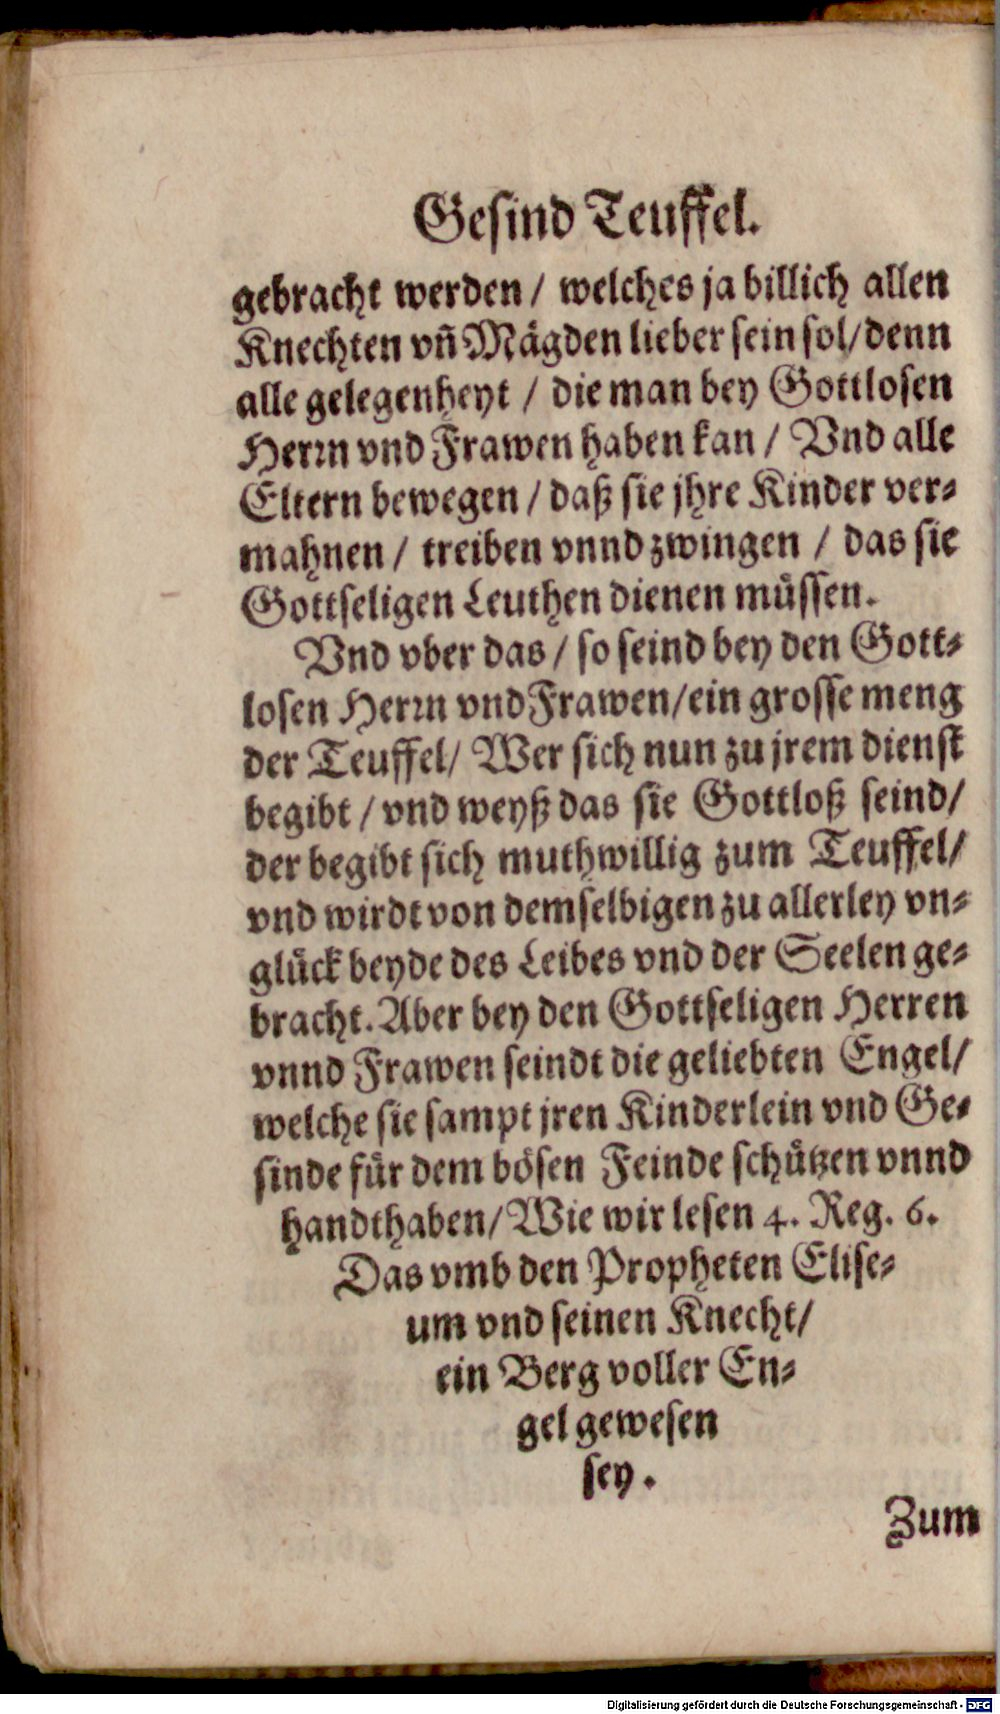 Gesind Teuffel.
gebracht werden / welches ja billich allen
Knechten vñ Mägden lieber sein sol / denn
alle gelegenheyt / die man bey Gottlosen
Herꝛn vnd Frawen haben kan / Vnd alle
Eltern bewegen / daß sie jhre Kinder ver⸗
mahnen / treiben vnnd zwingen / das sie
Gottseligen Leuthen dienen müssen.
Vnd vber das / so seind bey den Gott⸗
losen Herꝛn vnd Frawen / ein grosse meng
der Teuffel / Wer sich nun zu jrem dienst
begibt / vnd weyß das sie Gottloß seind /
der begibt sich muthwillig zum Teuffel /
vnd wirdt von demselbigen zu allerley vn⸗
glück beyde des Leibes vnd der Seelen ge⸗
bracht. Aber bey den Gottseligen Herren
vnnd Frawen seindt die geliebten Engel /
welche sie sampt jren Kinderlein vnd Ge⸗
sinde für dem bösen Feinde schützen vnnd
handthaben / Wie wir lesen 4. Reg. 6.
Das vmb den Propheten Elise⸗
um vnd seinen Knecht /
ein Berg voller En⸗
gel gewesen
sey.
Zum
Digitalisierung gefördert durch die Deutsche Forschungsgemeinschaft - DFG